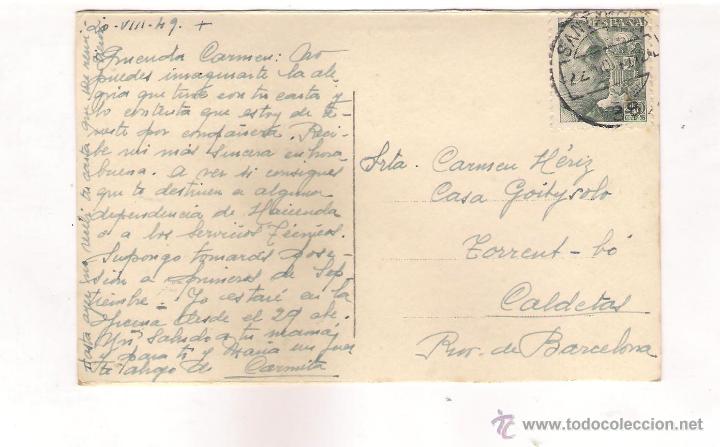 20-VIII-49. +
Querida Carmen: No
puedes imaginarte la ale-
gria que tuve con tu carta y
lo contenta que estoy de te-
nerte por compañera. Reci-
be mi más sincera enhora-
buena. A ver si consigues
que te destinen a alguna
dependencia de Hacienda
o a los Servicios Técnicos.
Supongo tomarás pose-
sión a primeros de Sep-
tiembre. Yo estaré en la
Oficina desde el 29 ate.
Mis saludos a tu mamá
y para ti y María un fuer-
te abrazo de Carmita
Hasta ayer no recibí tu carta que
ESPAÑA
Srta. Carmen Hériz
Casa Goitysolo
Torrent-bó
Caldetas
Prov. de Barcelona
www.todocoleccion.net